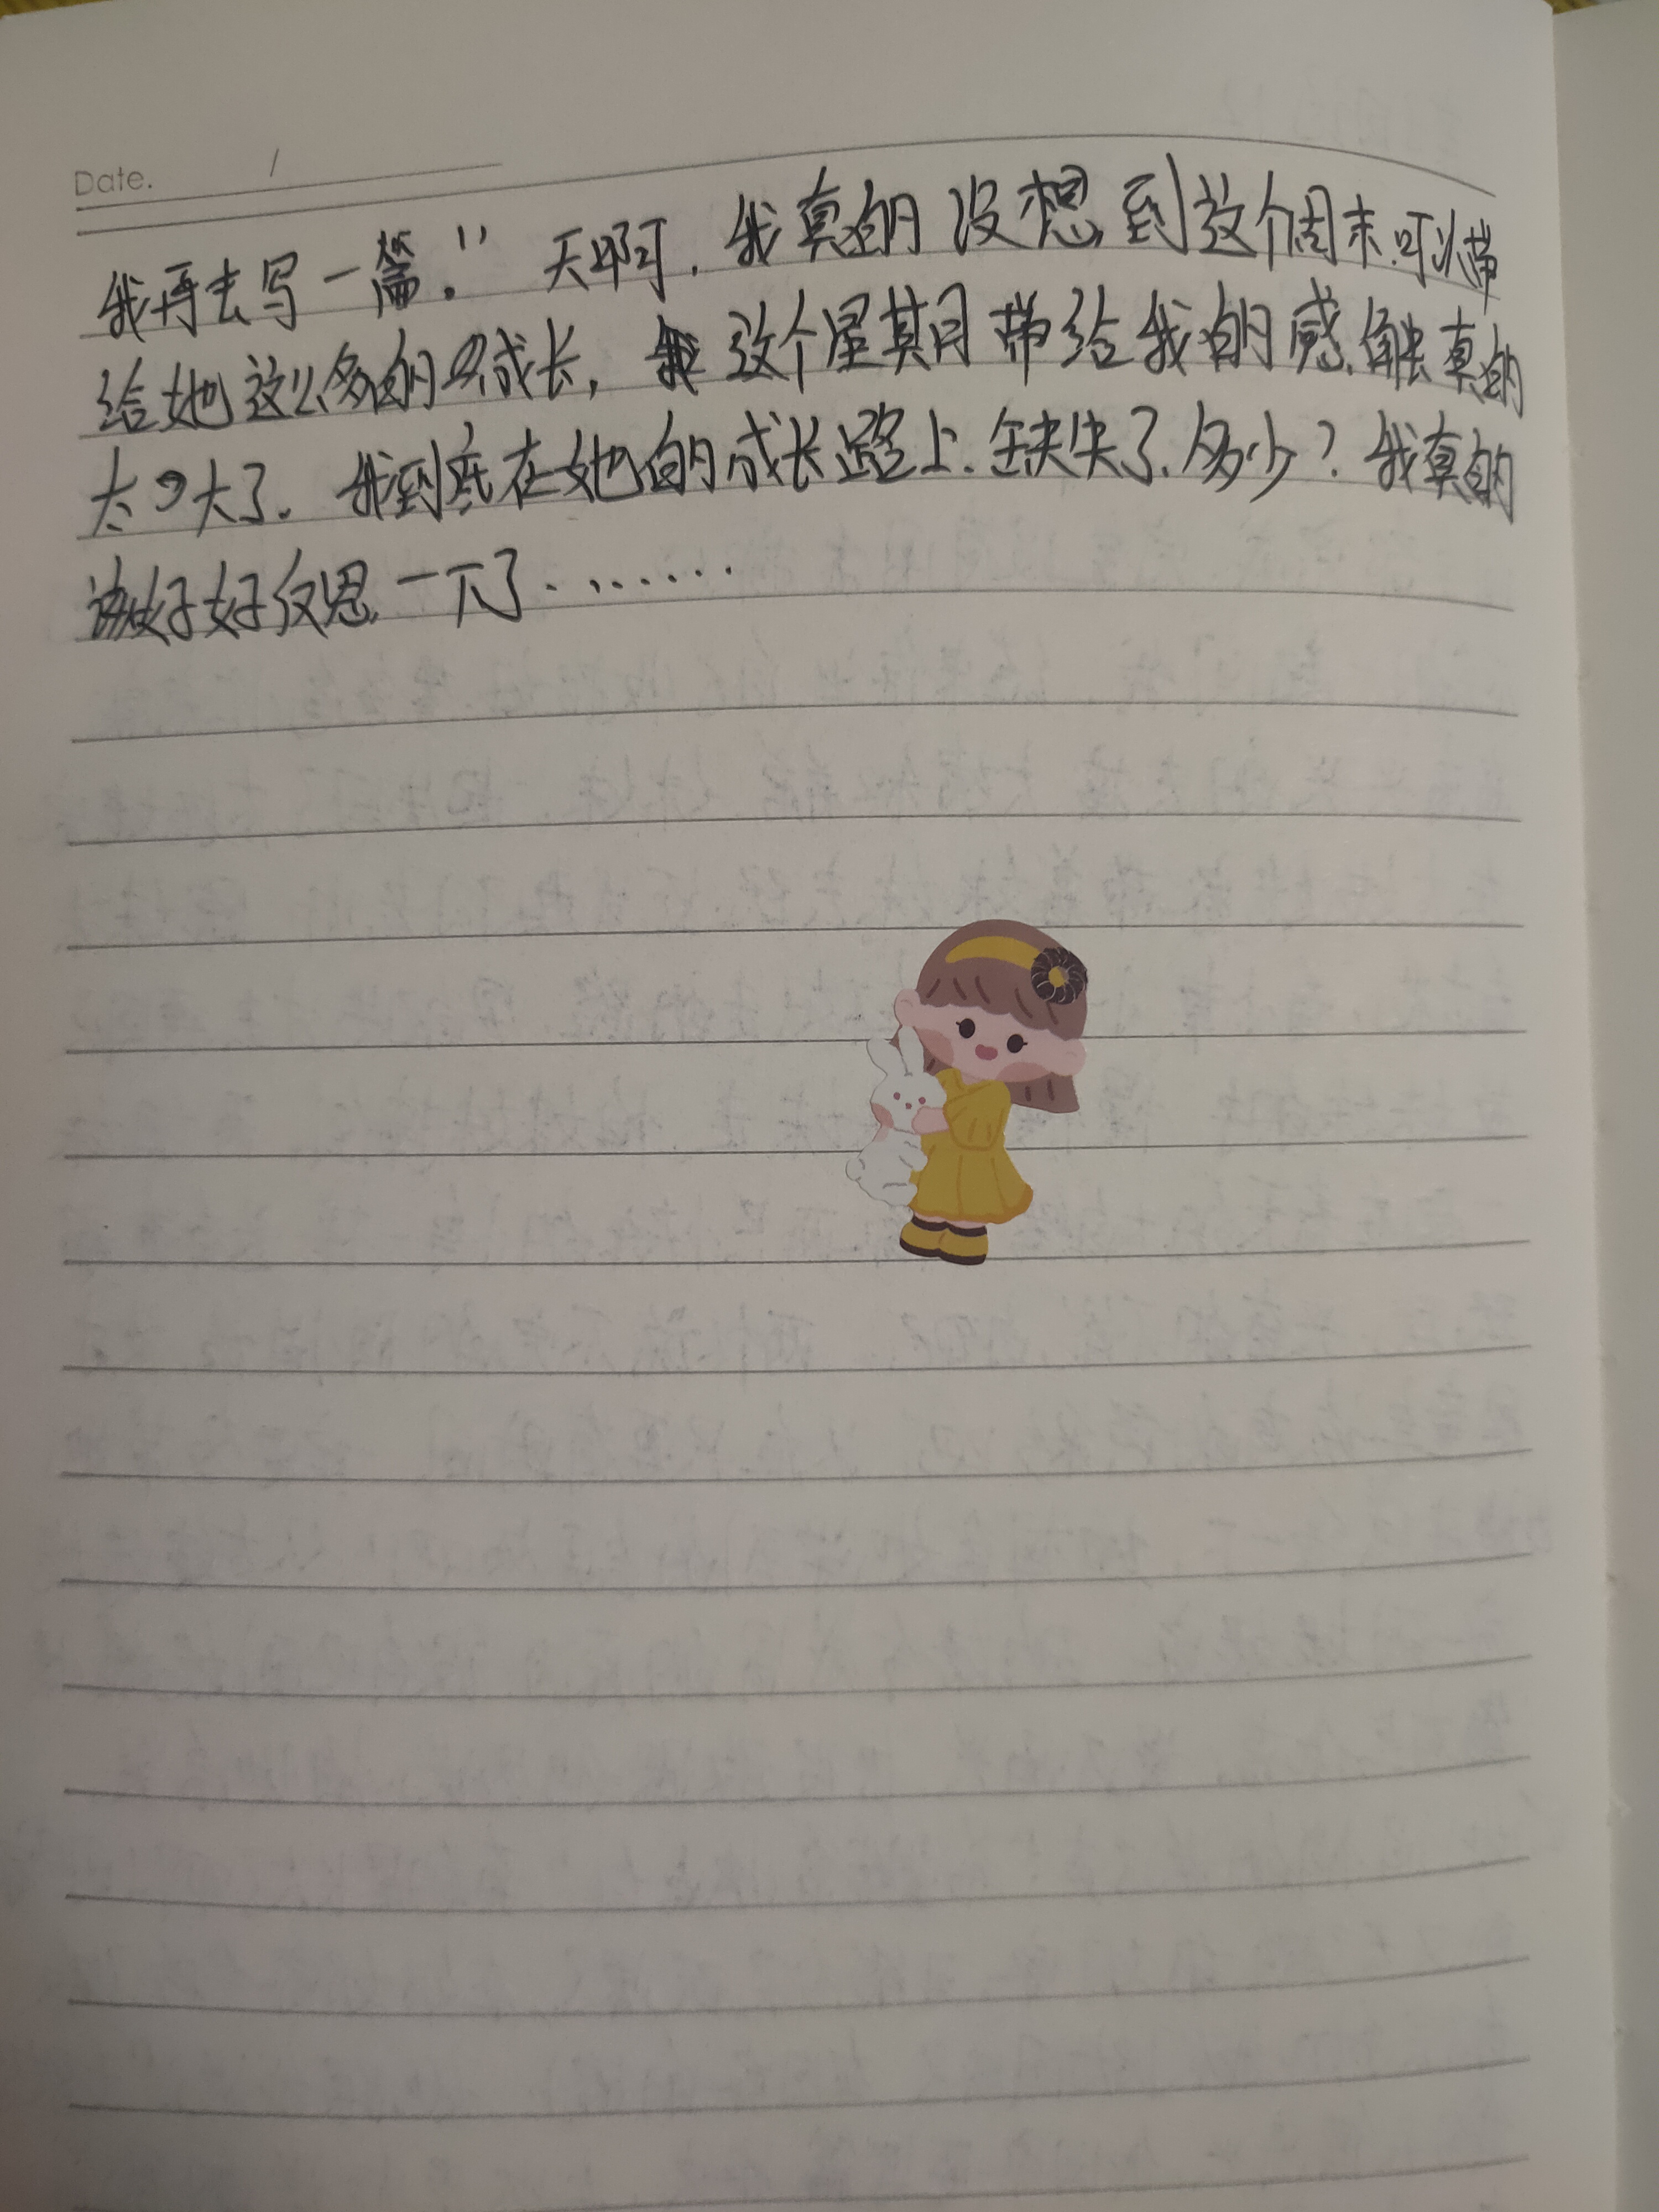 Date. /
我再去写一篇。" 天啊,我真的没想到这个周末可以带
给她这么多的成长,这个星期带给我的感触真的
太大了。我到底在她的成长路上缺失了多少?我真的
该好好反思一下了........